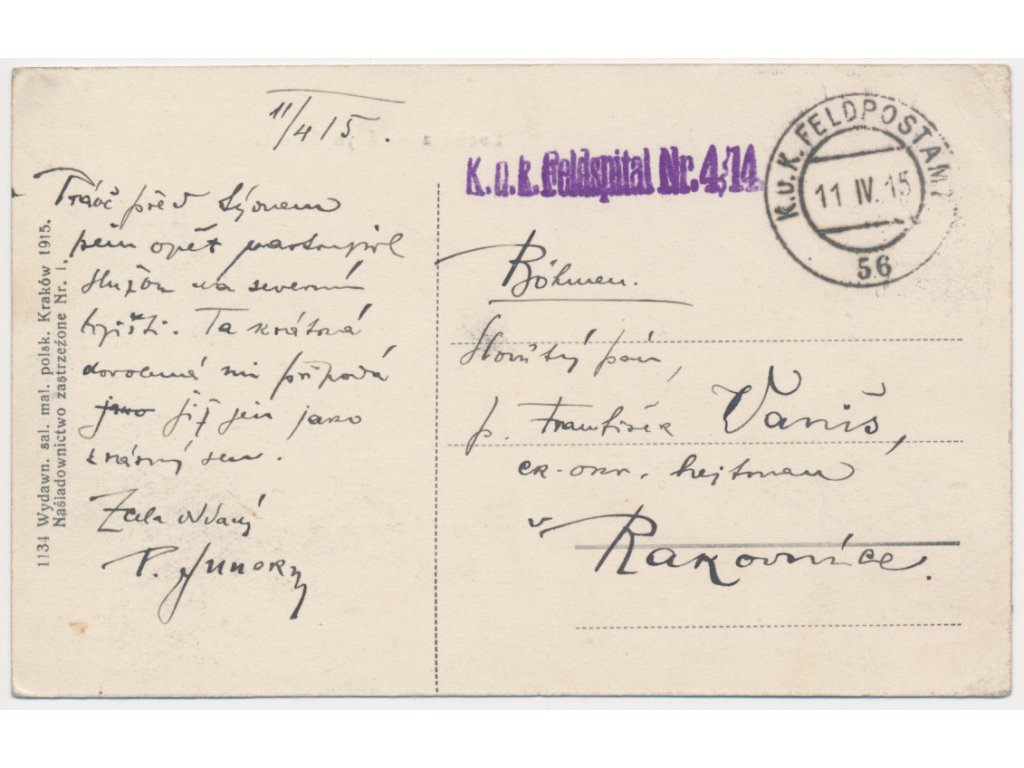 11/4 15.
Trávě před týdnem
jsem opět nastoupil
službu na severním
bojišti. Ta krátká
dovolená mi připadá
jako již jen jako
krásný sen.
Zcela oddaný
P.
1134 Wydawn. sal. mal. polsk. Kraków 1915.
Naśladownictwo zastrzeżone Nr. 1.
K. u. k. Feldspital Nr. 4/14.
K. u. K. FELDPOSTAMT
11 IV. 15
56
Böhmen.
Slovutný pán,
p. František Vaniš,
ck. okr. hejtman
v
Rakovníce.